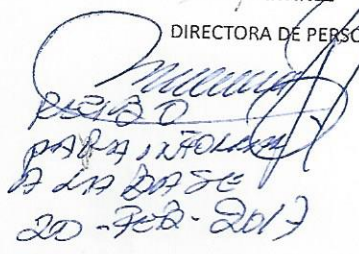 DIRECTORA DE PERSO
RECIBO
PARA INFORMAR
A LA BASE
20-FEB-2017